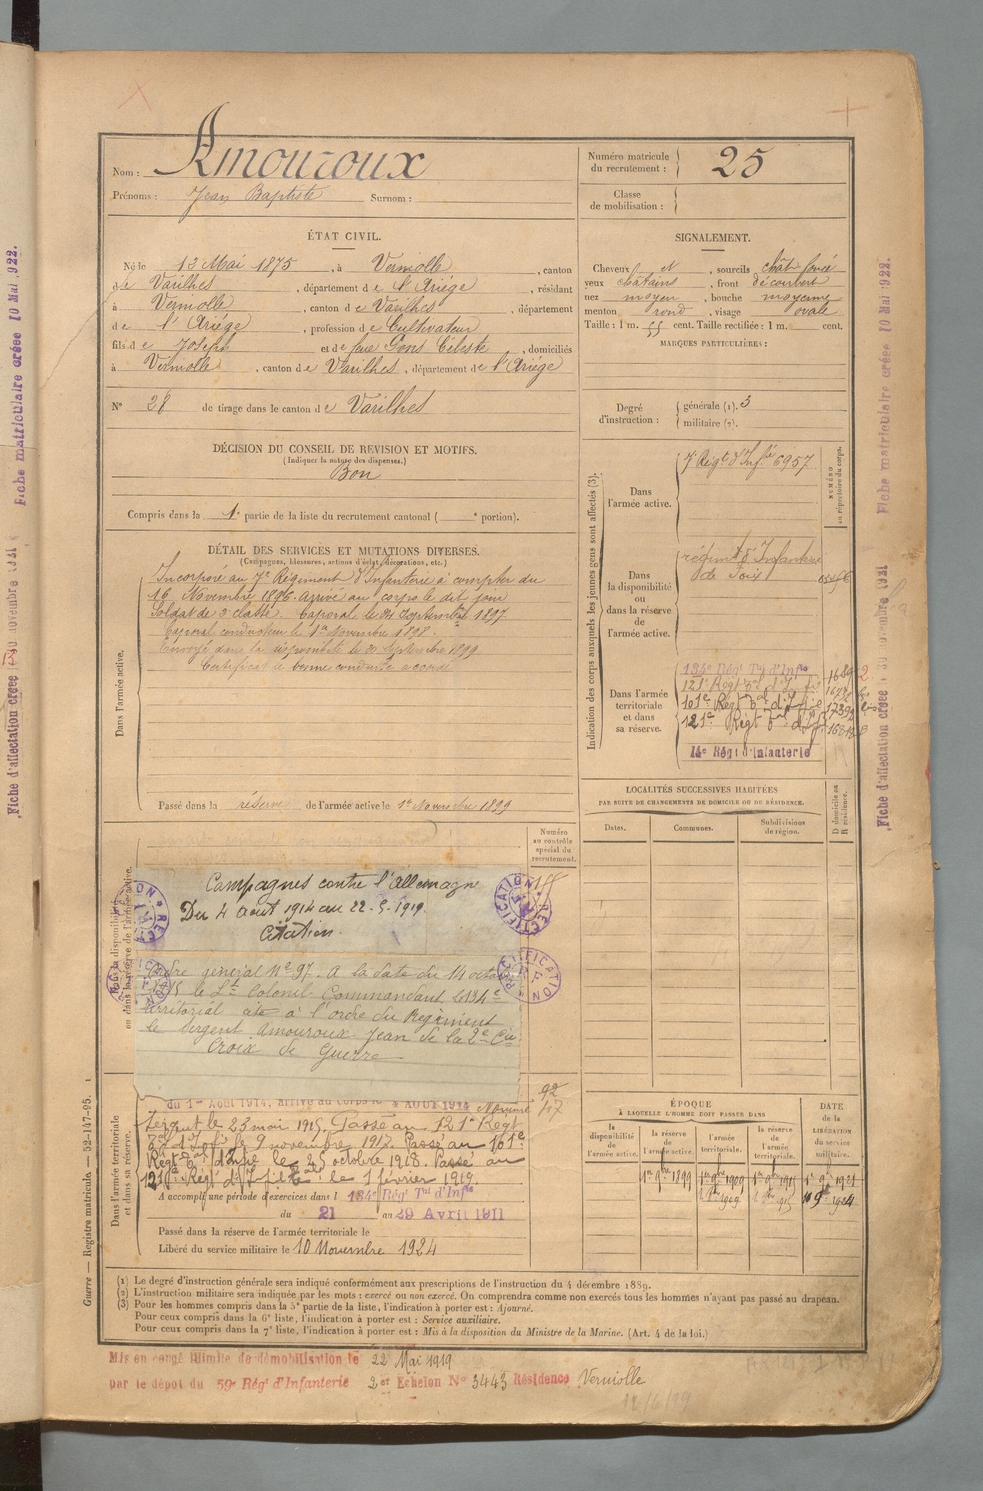 Nom : Amouroux
Prénoms : Jean Baptiste Surnom :
Numéro matricule du recrutement : 25
Classe de mobilisation :
ÉTAT CIVIL.
Né le 12 Mai 1875, à Verniolle, canton
de Varilhes, département de l'Ariége, résidant
à Verniolle, canton de Varilhes, département
de l'Ariége, profession de Cultivateur
fils de Joseph et de feue Pons Céleste, domiciliés
à Verniolle, canton de Varilhes, département de l'Ariége
N° 28 de tirage dans le canton de Varilhes
SIGNALEMENT.
Cheveux et, sourcils chât foncé
yeux chatains, front découvert
nez moyen, bouche moyenne
menton rond, visage ovale
Taille : 1 m. 55 cent. Taille rectifiée : 1 m. cent.
MARQUES PARTICULIÈRES :
Degré d'instruction : générale (1). 3
militaire (2).
DÉCISION DU CONSEIL DE REVISION ET MOTIFS.
(Indiquer la nature des dispenses.)
Bon
Compris dans la 1e partie de la liste du recrutement cantonal ( e portion).
DÉTAIL DES SERVICES ET MUTATIONS DIVERSES.
(Campagnes, blessures, actions d'éclat, décorations, etc.)
Dans l'armée active.
Incorporé au 7e Régiment d'Infanterie à compter du
16 Novembre 1896. Arrivé au corps le dit jour
Soldat de 2e classe. Caporal le 24 Septembre 1897
Caporal conducteur le 1er Novembre 1898.
Envoyé dans la disponibilité le 20 Septembre 1899
Certificat de bonne conduite accordé
Passé dans la réserve de l'armée active le 1er Novembre 1899
Indication des corps auxquels les jeunes gens sont affectés (3).
NUMÉRO au répertoire du corps.
Dans l'armée active.
7e Régt d'Infie 6957
Dans la disponibilité ou dans la réserve de l'armée active.
régiment d'Infanterie
de Foix
Dans l'armée territoriale et dans sa réserve.
134e Régt Tal d'Infie
121e Régt Tal d'Infie
101e Régt Tal d'Infie
121e Régt Tal d'Inf
14e Régt d'Infanterie
LOCALITÉS SUCCESSIVES HABITÉES
PAR SUITE DE CHANGEMENTS DE DOMICILE OU DE RÉSIDENCE.
Dates. Communes. Subdivisions de région. D domicile ou R résidence.
Numéro au contrôle spécial du recrutement.
Dans la disponibilité ou dans la réserve de l'armée active.
Campagnes contre l'Allemagne
Du 4 Août 1914 au 22-5-1919.
Citation.
RECTIFICATION
Ordre général No 97. A la date du 14 octobre
1915 le Lt Colonel Commandant le 134e
territorial cite à l'ordre du Régiment
le Sergent Amouroux Jean de la 2e Cie
Croix de Guerre
Dans l'armée territoriale et dans sa réserve.
du 1er Août 1914, arrivé au corps le 4 AOUT 1914 Nommé
Sergent le 23 mai 1915. Passé au 121e Régt
Tal d'Infie le 9 novembre 1917. Passé au 101e
Régt Tal d'Infie le 25 octobre 1918. Passé au
121e Régt d'Infie Tal le 1 février 1919.
A accompli une période d'exercices dans l 134e Régt Tal d'Infie
du 21 au 29 Avril 1911
Passé dans la réserve de l'armée territoriale le
Libéré du service militaire le 10 Novembre 1924
92
ÉPOQUE
À LAQUELLE L'HOMME DOIT PASSER DANS
la disponibilité de l'armée active.
la réserve de l'armée active. 1er 9bre 1899
l'armée territoriale. 1er 9bre 1909
la réserve de l'armée territoriale. 1er 9bre 1915
DATE de la LIBÉRATION du service militaire. 1er 9bre 1921
10 9bre 1924
(1) Le degré d'instruction générale sera indiqué conformément aux prescriptions de l'instruction du 4 décembre 1889.
(2) L'instruction militaire sera indiquée par les mots : exercé ou non exercé. On comprendra comme non exercés tous les hommes n'ayant pas passé au drapeau.
(3) Pour les hommes compris dans la 5e partie de la liste, l'indication à porter est : Ajourné.
Pour ceux compris dans la 6e liste, l'indication à porter est : Service auxiliaire.
Pour ceux compris dans la 7e liste, l'indication à porter est : Mis à la disposition du Ministre de la Marine. (Art. 4 de la loi.)
Mis en congé illimité de démobilisation le 22 Mai 1919
par le dépôt du 59e Régt d'Infanterie 2e Echelon N° 3443 Résidence Verniolle
Guerre — Registre matricule. — 52-147-95.
Fiche d'affectation créée le 30 novembre 1921
Fiche matriculaire créée 10 Mai 1922.